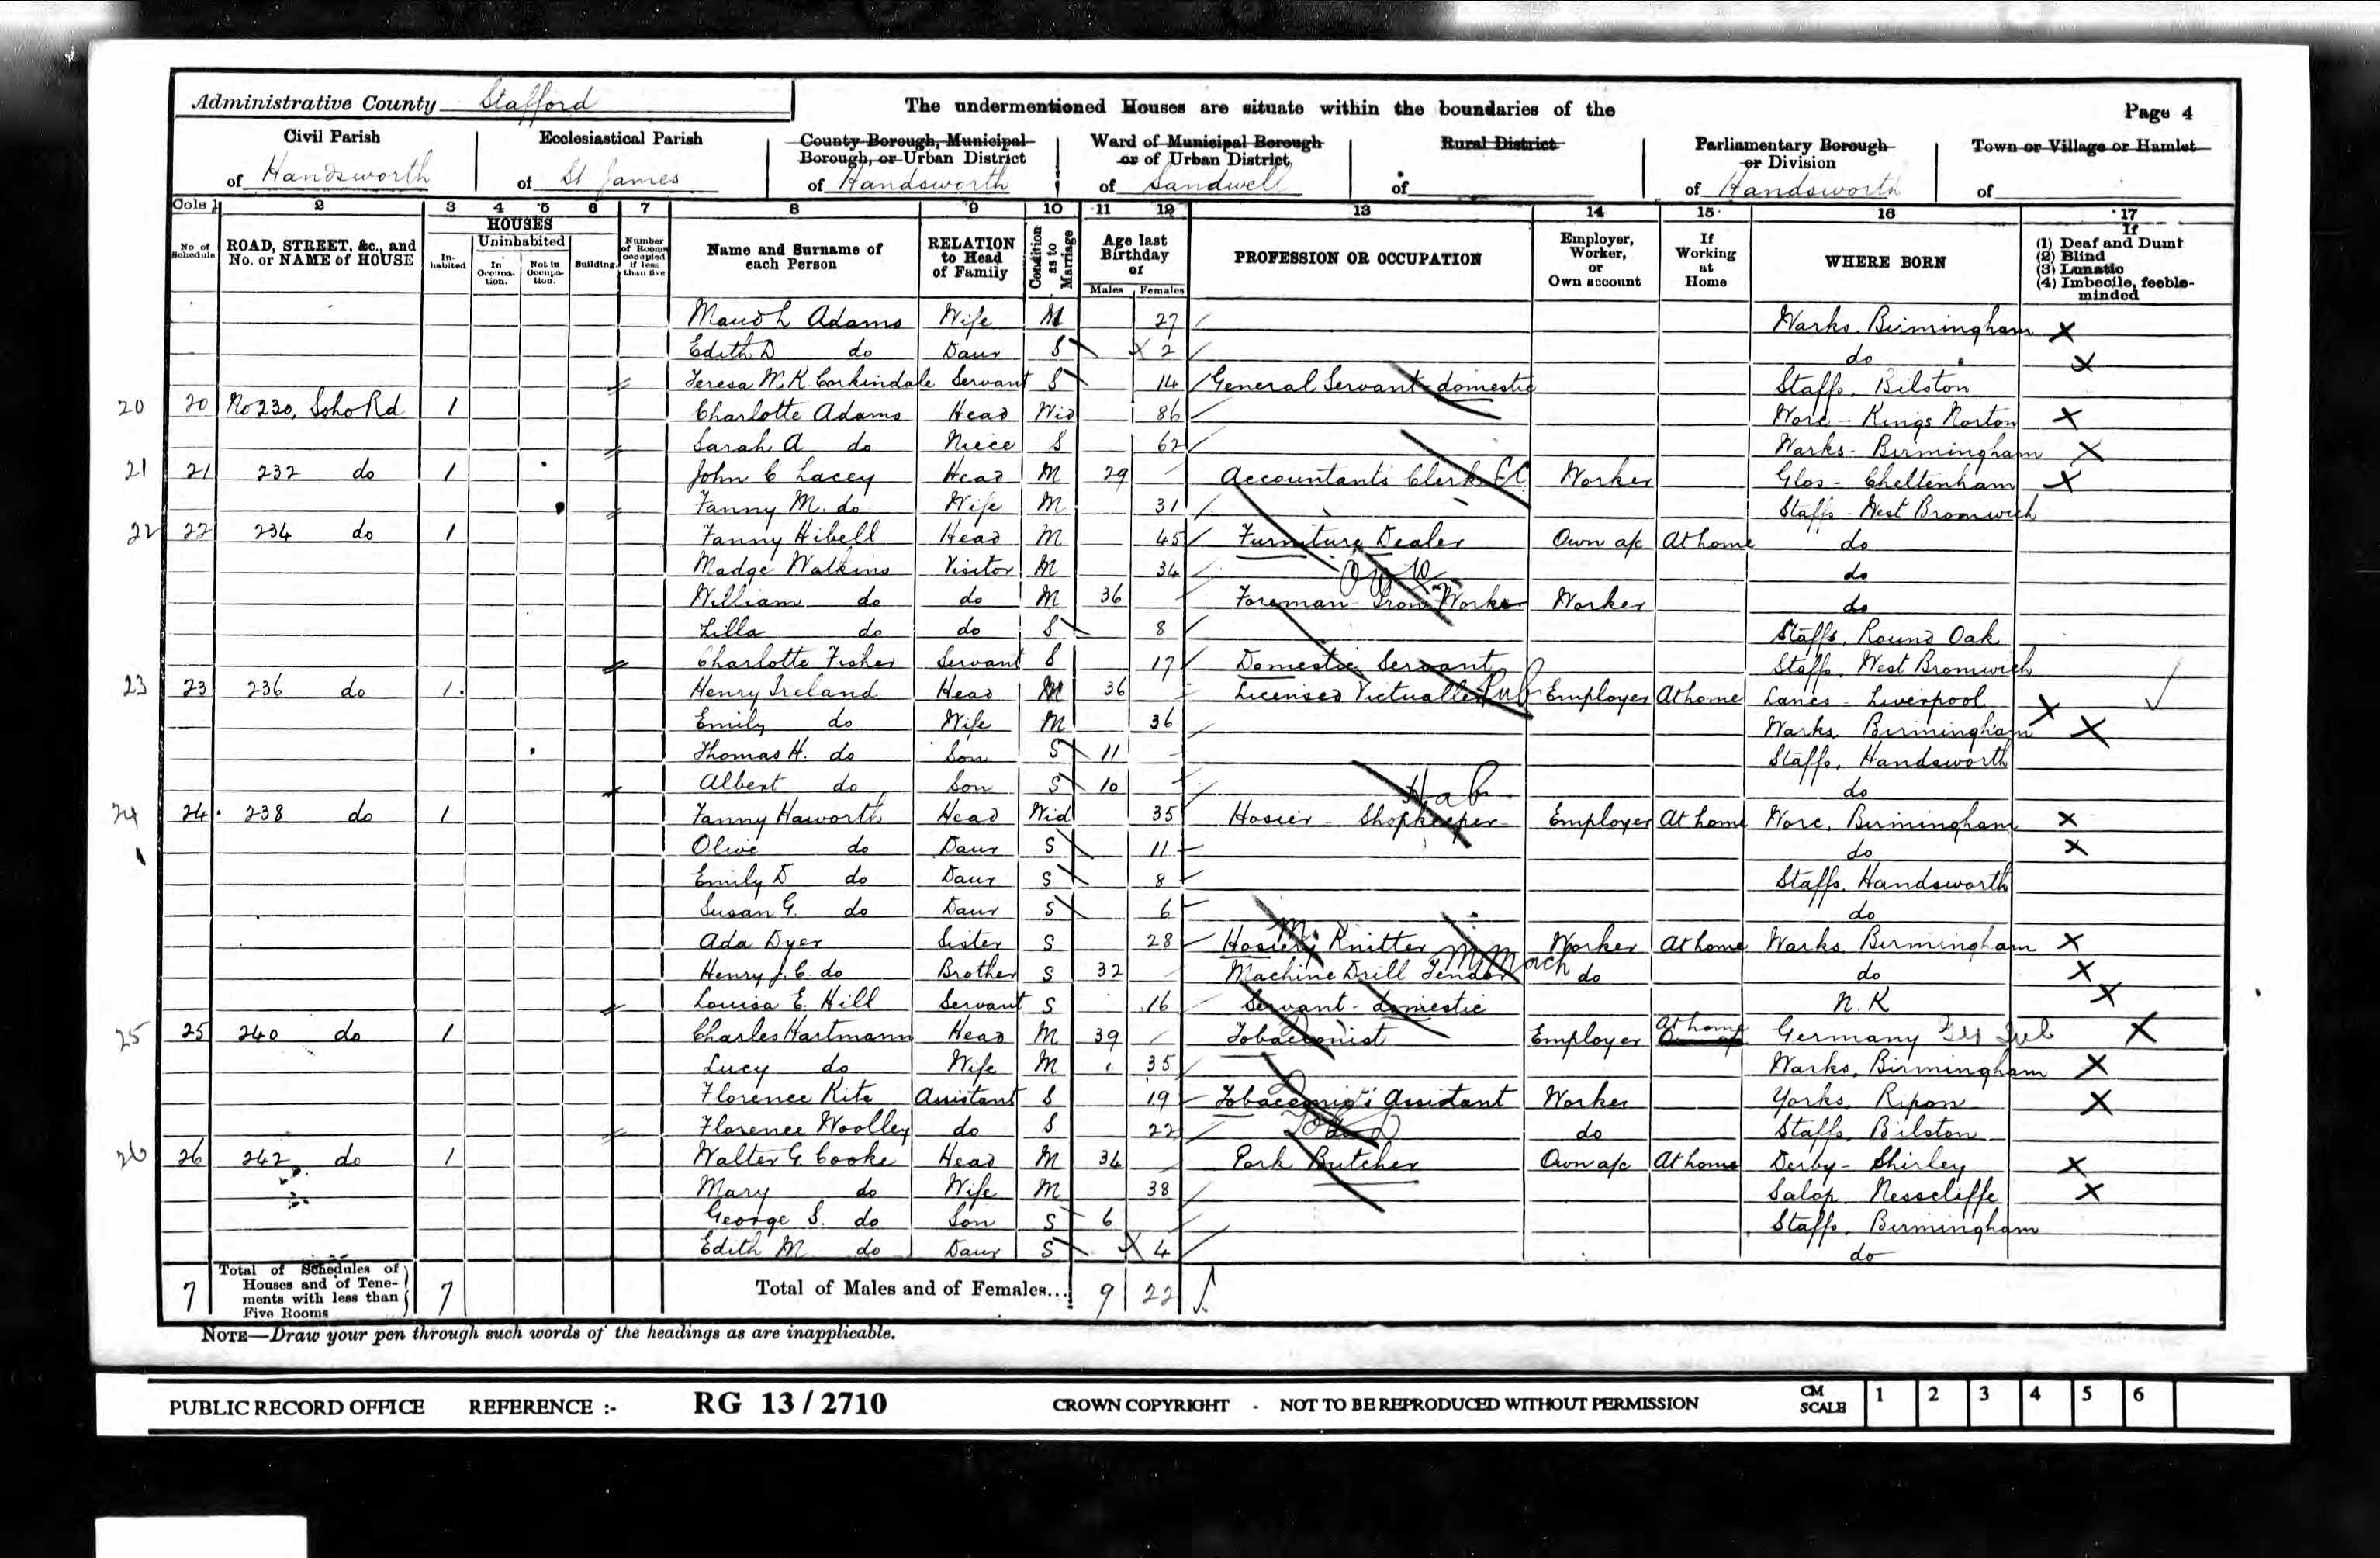 Administrative County Stafford
The undermentioned Houses are situate within the boundaries of the
Page 4
Civil Parish of Handsworth
Ecclesiastical Parish of St James
County Borough, Municipal Borough, or Urban District of Handsworth
Ward of Municipal Borough or of Urban District of Sandwell
Rural District of
Parliamentary Borough or Division of Handsworth
Town or Village or Hamlet of
Cols 1 2 3 4 5 6 7 8 9 10 11 12 13 14 15 16 17
No of Schedule
ROAD, STREET, &c., and No. or NAME of HOUSE
HOUSES
In-habited
Uninhabited
In Occupa-tion.
Not in Occupa-tion.
Building
Number of Rooms occupied if less than five
Name and Surname of each Person
RELATION to Head of Family
Condition as to Marriage
Age last Birthday of
Males Females
PROFESSION OR OCCUPATION
Employer, Worker, or Own account
If Working at Home
WHERE BORN
If
(1) Deaf and Dumb
(2) Blind
(3) Lunatic
(4) Imbecile, feeble-minded
Maud L Adams Wife M 27 Warks. Birmingham
Edith D do Daur S 2 do
Teresa M. K. Corkindale Servant S 14 General Servant domestic Staffs. Bilston
20 20 No 230, Soho Rd 1 Charlotte Adams Head Wid 86 Worc - Kings Norton
Sarah A do Niece S 62 Warks - Birmingham
21 21 232 do 1 John C Lacey Head M 29 Accountants Clerk Worker Glos - Cheltenham
Fanny M. do Wife M 31 Staffs - West Bromwich
22 22 234 do 1 Fanny Hibell Head M 45 Furniture Dealer Own a/c At home do
Madge Watkins Visitor M 34 do
William do do M 36 Foreman Iron Works Worker do
Lilla do do S 8 Staffs. Round Oak
Charlotte Fisher Servant S 17 Domestic Servant Staffs. West Bromwich
23 23 236 do 1 Henry Ireland Head M 36 Licensed Victualler Pub Employer At home Lancs - Liverpool
Emily do Wife M 36 Warks. Birmingham
Thomas H. do Son S 11 Staffs. Handsworth
Albert do Son S 10 do
Hab
24 24 238 do 1 Fanny Haworth Head Wid 35 Hosier - Shopkeeper Employer At home Worc. Birmingham
Olive do Daur S 11 do
Emily D do Daur S 8 Staffs. Handsworth
Susan G. do Daur S 6 do
Ada Dyer Sister S 28 Hosiery Knitter Worker At home Warks. Birmingham
Henry J. C. do Brother S 32 Machine Drill Tender M Mach do do
Louisa E. Hill Servant S 16 Servant - domestic N. K
25 25 240 do 1 Charles Hartmann Head M 39 Tobacconist Employer At home Germany
Lucy do Wife M 35 Warks. Birmingham
Florence Kite Assistant S 19 Tobacconist's Assistant Worker Yorks. Ripon
Florence Woolley do S 22 do Staffs. Bilston
26 26 242 do 1 Walter G. Cooke Head M 34 Pork Butcher Own a/c At home Derby - Shirley
Mary do Wife M 38 Salop. Nesscliffe
George S. do Son S 6 Staffs. Birmingham
Edith M do Daur S 4 do
7 Total of Schedules of Houses and of Tene-ments with less than Five Rooms 7 Total of Males and of Females... 9 22
NOTE—Draw your pen through such words of the headings as are inapplicable.
PUBLIC RECORD OFFICE REFERENCE :- RG 13 / 2710 CROWN COPYRIGHT - NOT TO BE REPRODUCED WITHOUT PERMISSION CM SCALE 1 2 3 4 5 6